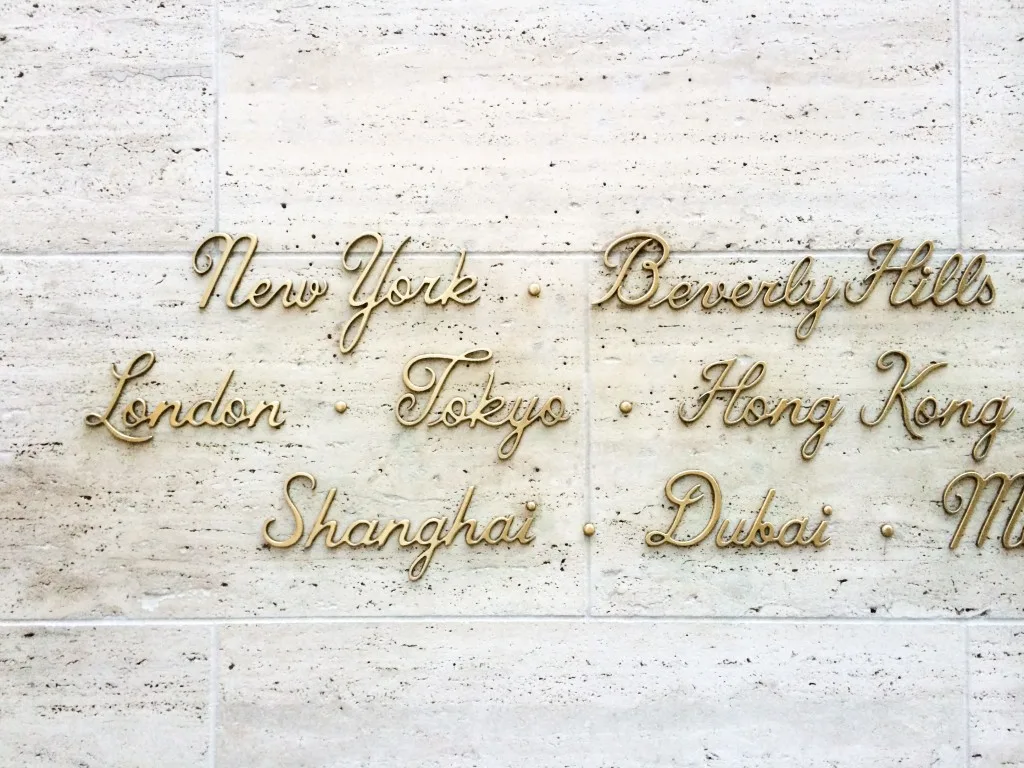 New York · Beverly Hills
London · Tokyo · Hong Kong
Shanghai · Dubai ·